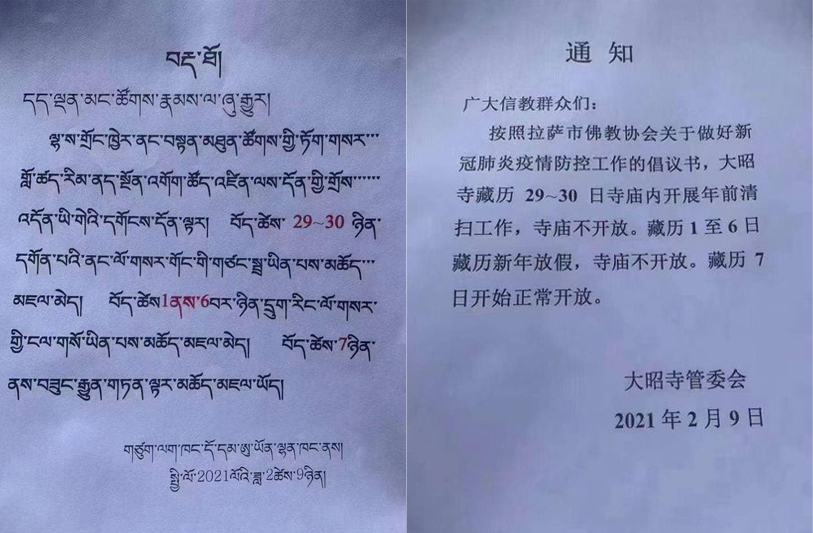 བརྡ་ཐོ།
དད་ལྡན་མང་ཚོགས་རྣམས་ལ་ཞུ་རྒྱུར།
ལྷ་ས་གྲོང་ཁྱེར་ནང་བསྟན་མཐུན་ཚོགས་ཀྱི་ཏོག་གསར་
གློ་ཚད་རིམ་ནད་སྔོན་འགོག་ཚོད་འཛིན་ལས་དོན་གྱི་གྲོས་
འདོན་ཡི་གེའི་དགོངས་དོན་ལྟར། བོད་ཚེས་ 29~30 ཉིན་
དགོན་པའི་ནང་ལོ་གསར་གོང་གི་གཙང་སྦྲ་ཡིན་པས་མཆོད་
མཇལ་མེད། བོད་ཚེས་1ནས་6བར་ཉིན་དྲུག་རིང་ལོ་གསར་
གྱི་ངལ་གསོ་ཡིན་པས་མཆོད་མཇལ་མེད། བོད་ཚེས་7ཉིན་
ནས་བཟུང་རྒྱུན་གཏན་ལྟར་མཆོད་མཇལ་ཡོད།
གཙུག་ལག་ཁང་དོ་དམ་ཨུ་ཡོན་ལྷན་ཁང་ནས།
སྤྱི་ལོ་2021ལོའི་ཟླ་2ཚེས་9ཉིན།
通 知
广大信教群众们：
按照拉萨市佛教协会关于做好新
冠肺炎疫情防控工作的倡议书，大昭
寺藏历 29~30 日寺庙内开展年前清
扫工作，寺庙不开放。藏历 1 至 6 日
藏历新年放假，寺庙不开放。藏历 7
日开始正常开放。
大昭寺管委会
2021 年 2 月 9 日